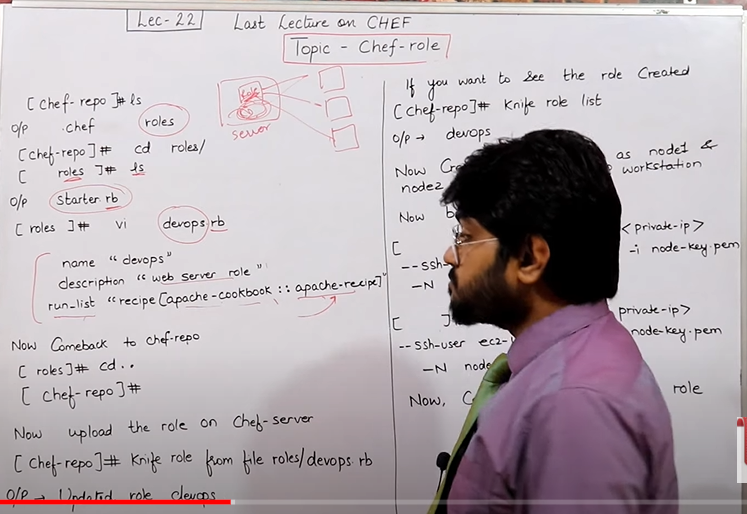 Lec-22 Last Lecture on CHEF
Topic - Chef-role
[chef-repo]# ls
O/P .chef roles
[chef-repo]# cd roles/
[ roles ]# ls
O/P starter.rb
[ roles ]# vi devops.rb
name "devops"
description "web server role"
run_list "recipe[apache-cookbook::apache-recipe]"
Now Comeback to chef-repo
[ roles]# cd..
[ chef-repo]#
Now upload the role on Chef-server
[ chef-repo]# Knife role from file roles/devops.rb
O/P → Updated role devops
role
server
If you want to See the role Created
[chef-repo]# Knife role list
O/P → devops
Now as node1 &
node2 workstation
Now b
[ <private-ip>
--ssh- -i node-key.pem
-N
[ ] private-ip>
--ssh-user ec2- node-key.pem
-N node
Now, role